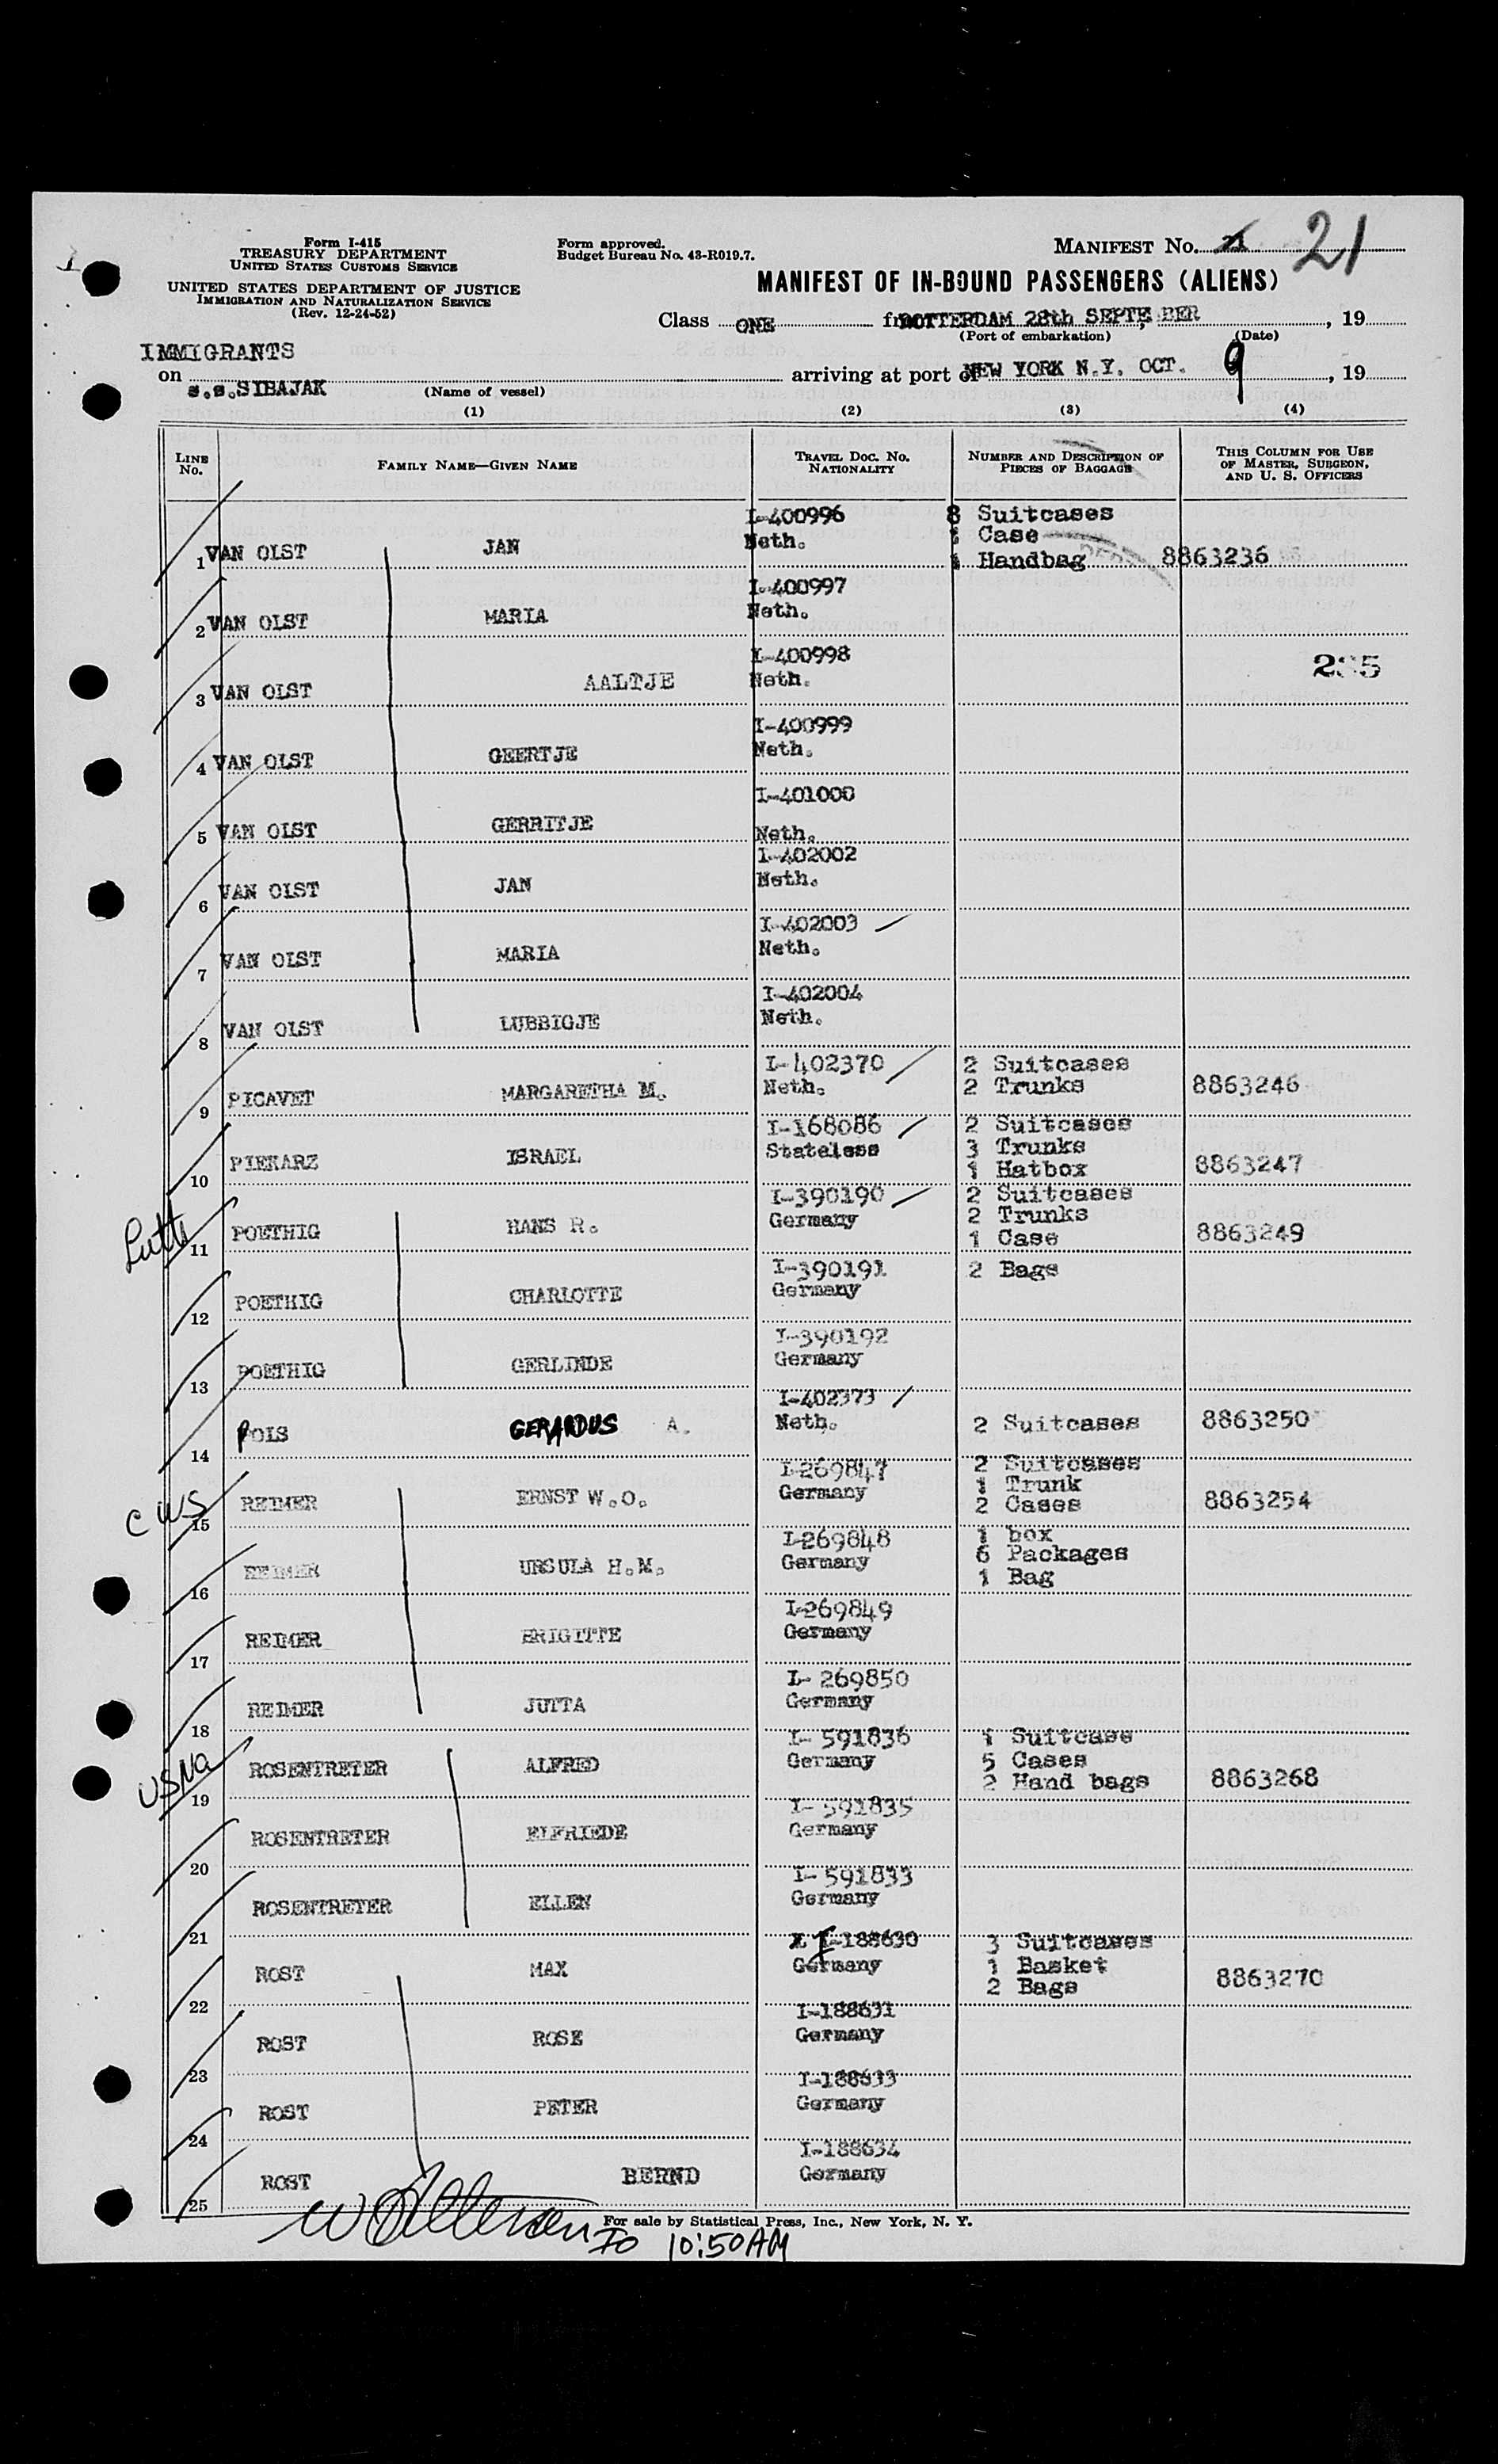 Form I-415
TREASURY DEPARTMENT
UNITED STATES CUSTOMS SERVICE
UNITED STATES DEPARTMENT OF JUSTICE
IMMIGRATION AND NATURALIZATION SERVICE
(Rev. 12-24-52)
Form approved.
Budget Bureau No. 43-R019.7.
MANIFEST No. 21
MANIFEST OF IN-BOUND PASSENGERS (ALIENS)
Class ONE from ROTTERDAM 28th SEPTEMBER, 19
(Port of embarkation) (Date)
IMMIGRANTS
on s.s.SIBAJAK arriving at port of NEW YORK N.Y. OCT. 9, 19
(Name of vessel)
(1) (2) (3) (4)
LINE No. FAMILY NAME—GIVEN NAME TRAVEL DOC. NO. NATIONALITY NUMBER AND DESCRIPTION OF PIECES OF BAGGAGE THIS COLUMN FOR USE OF MASTER, SURGEON, AND U. S. OFFICERS
I-400996 8 Suitcases
1 VAN OLST JAN Neth. 1 Case
1 Handbag 8863236
I-400997
2 VAN OLST MARIA Neth.
I-400998 235
3 VAN OLST AALTJE Neth.
I-400999
4 VAN OLST GEERTJE Neth.
I-401000
5 VAN OLST GERRITJE Neth.
I-402002
6 VAN OLST JAN Neth.
I-402003
7 VAN OLST MARIA Neth.
I-402004
8 VAN OLST LUBBIGJE Neth.
I-402370 2 Suitcases
9 PICAVET MARGARETHA M. Neth. 2 Trunks 8863246
I-168086 2 Suitcases
10 PIEKARZ ISRAEL Stateless 3 Trunks
1 Hatbox 8863247
I-390190 2 Suitcases
11 POETHIG HANS R. Germany 2 Trunks
1 Case 8863249
I-390191 2 Bags
12 POETHIG CHARLOTTE Germany
I-390192
13 POETHIG GERLINDE Germany
I-402373
14 POLS GERARDUS A. Neth. 2 Suitcases 8863250
I-269847 2 Suitcases
CWS 15 REIMER ERNST W.O. Germany 1 Trunk
2 Cases 8863254
I-269848 1 box
16 REIMER URSULA H.M. Germany 6 Packages
1 Bag
I-269849
17 REIMER BRIGITTE Germany
I-269850
18 REIMER JUTTA Germany
I-591836 1 Suitcase
USNa 19 ROSENTRETER ALFRED Germany 5 Cases
2 Hand bags 8863268
I-591835
20 ROSENTRETER ELFRIEDE Germany
I-591833
21 ROSENTRETER ELLEN Germany
I-188630 3 Suitcases
22 ROST MAX Germany 1 Basket
2 Bags 8863270
I-188631
23 ROST ROSE Germany
I-188633
24 ROST PETER Germany
I-188634
25 ROST BERND Germany
For sale by Statistical Press, Inc., New York, N. Y.
IO 10:50AM